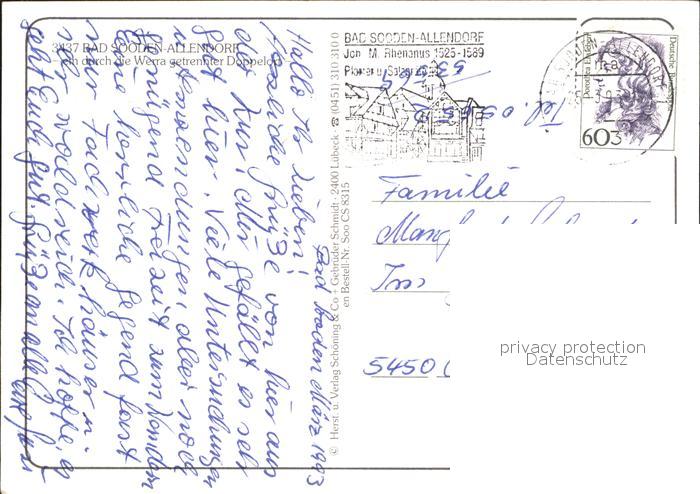 3437 BAD SOODEN-ALLENDORF
– ein durch die Werra getrennter Doppelort –
Bad Sooden März 1993
Hallo Ihr Lieben!
Herzliche Grüße von hier aus
der Kur. Mir gefällt es sehr
gut hier. Viele Untersuchungen
u. Anwendungen, aber noch
genügend Freizeit zum Wandern
Eine herrliche Gegend fast
nur Fachwerkhäuser u.
sehr waldreich. Ich hoffe, es
geht Euch gut. Grüße an alle
© Herst. u. Verlag Schöning & Co · Gebrüder Schmidt · 2400 Lübeck · ☎ (0451) 310 310 0
en Bestell-Nr. Soo CS 8315
BAD SOODEN-ALLENDORF
Joh. M. Rhenanus 1525-1589
Pfarrer u. Salzgräfe
Tel.
Deutsche Bundespost
60
Familie
Im
5450
privacy protection
Datenschutz